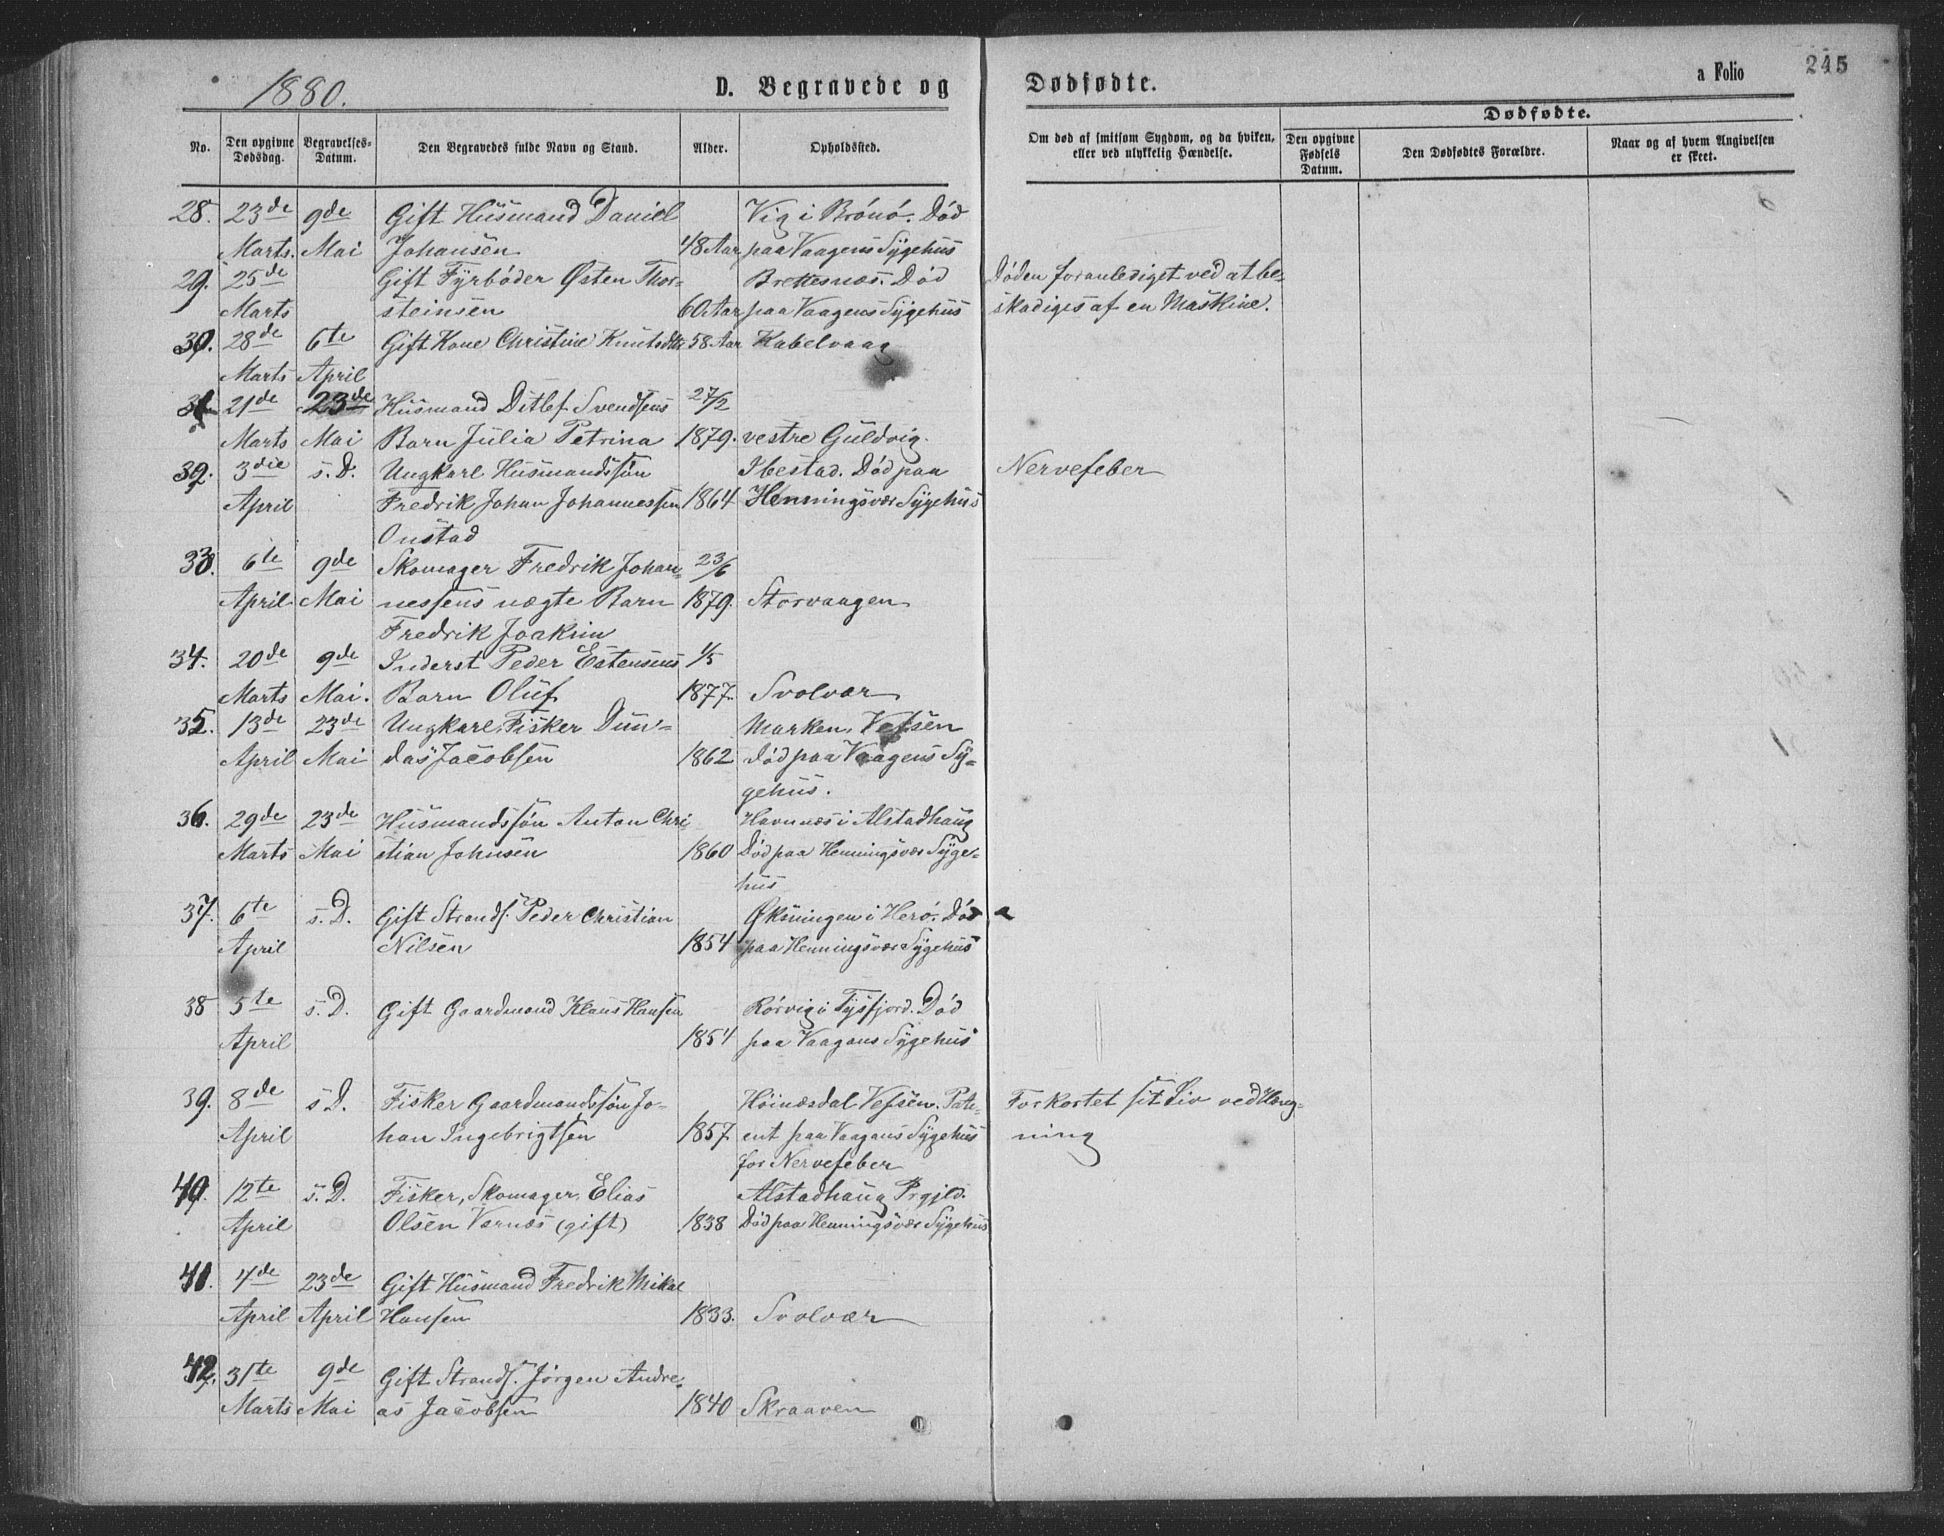 1880.
D. Begravede og Dødfødte.
a Folio 245
Dødfødte.
No. Den opgivne Dødsdag. Begravelses-Datum. Den Begravedes fulde Navn og Stand. Alder. Opholdssted. Om død af smitsom Sygdom, og da hvilken, eller ved ulykkelig Hændelse. Den opgivne Fødsels Datum. Den Dødfødtes Forældre. Naar og af hvem Angivelsen er skeet.
28. 23de 9de Gift Husmand Daniel Vig i Brønø. Død
Marts. Mai Johansen 48 Aar paa Vaagens Sygehus
29. 25de Gift Fyrbøder Østen Thor- Brettesnæs. Død Døden foranlediget ved at be-
Marts steinsen 60 Aar paa Vaagens Sygehus skadiges af en Maskine.
30. 28de 6te Gift Kone Christine Knutsdtr 58 Aar Kabelvaag
Marts April
31 21de 23de Husmand Ditlef Svendsens 27/2
Marts Mai Barn Julia Petrina 1879. vestre Guldvig.
32. 3die s. D. Ungkarl Husmandssøn Ibestad. Død paa Nervefeber
April Fredrik Johan Johannessen 1864 Henningsvær Sygehus
Onstad
33. 6te 9de Skomager Fredrik Johan- 23/6
April Mai nessens nægte Barn 1879. Storvaagen
Fredrik Joakim
34. 20de 9de Inderst Peder Estensens 1/5
Marts Mai. Barn Oluf 1877. Svolvær
35. 13de 23de Ungkarl, Fisker Dun- Marken, Vefsen
April Mai das Jacobsen 1862 død paa Vaagens Sy-
gehus.
36. 29de 23de Husmandssøn Anton Chri Havnnæs i Alstadhaug
Marts Mai stian Johnsen 1860 Død paa Henningsvær Syge-
hus
37. 6te s. D. Gift Strands. Peder Christian Øksningen i Herø. Død
April Nilsen 1854 paa Henningsvær Sygehus
38 5te s. D. Gift Gaardmand Klaus Hansen Rørvig i Tysfjord. Død
April 1854 paa Vaagans Sygehus
39. 8de s D. Fisker Gaardmandssøn Jo- Høinæsdal Vefsen. Pati- Forkortet sit Liv ved Hæng-
April han Ingebrigtsen 1857 ent paa Vaagans Sygehus ning
for Nervefeber
40. 12te s. D. Fisker, Skomager, Elias Alstadhaug Prgjld.
April Olsen Varnæs (gift) 1838 Død paa Henningsvær Sygehus
41. 7de 23de Gift Husmand Fredrik Mikal
April April Hansen 1833. Svolvær
42. 31te 9de Gift Strands. Jørgen Andre-
Marts Mai as Jacobsen 1840 Skraaven